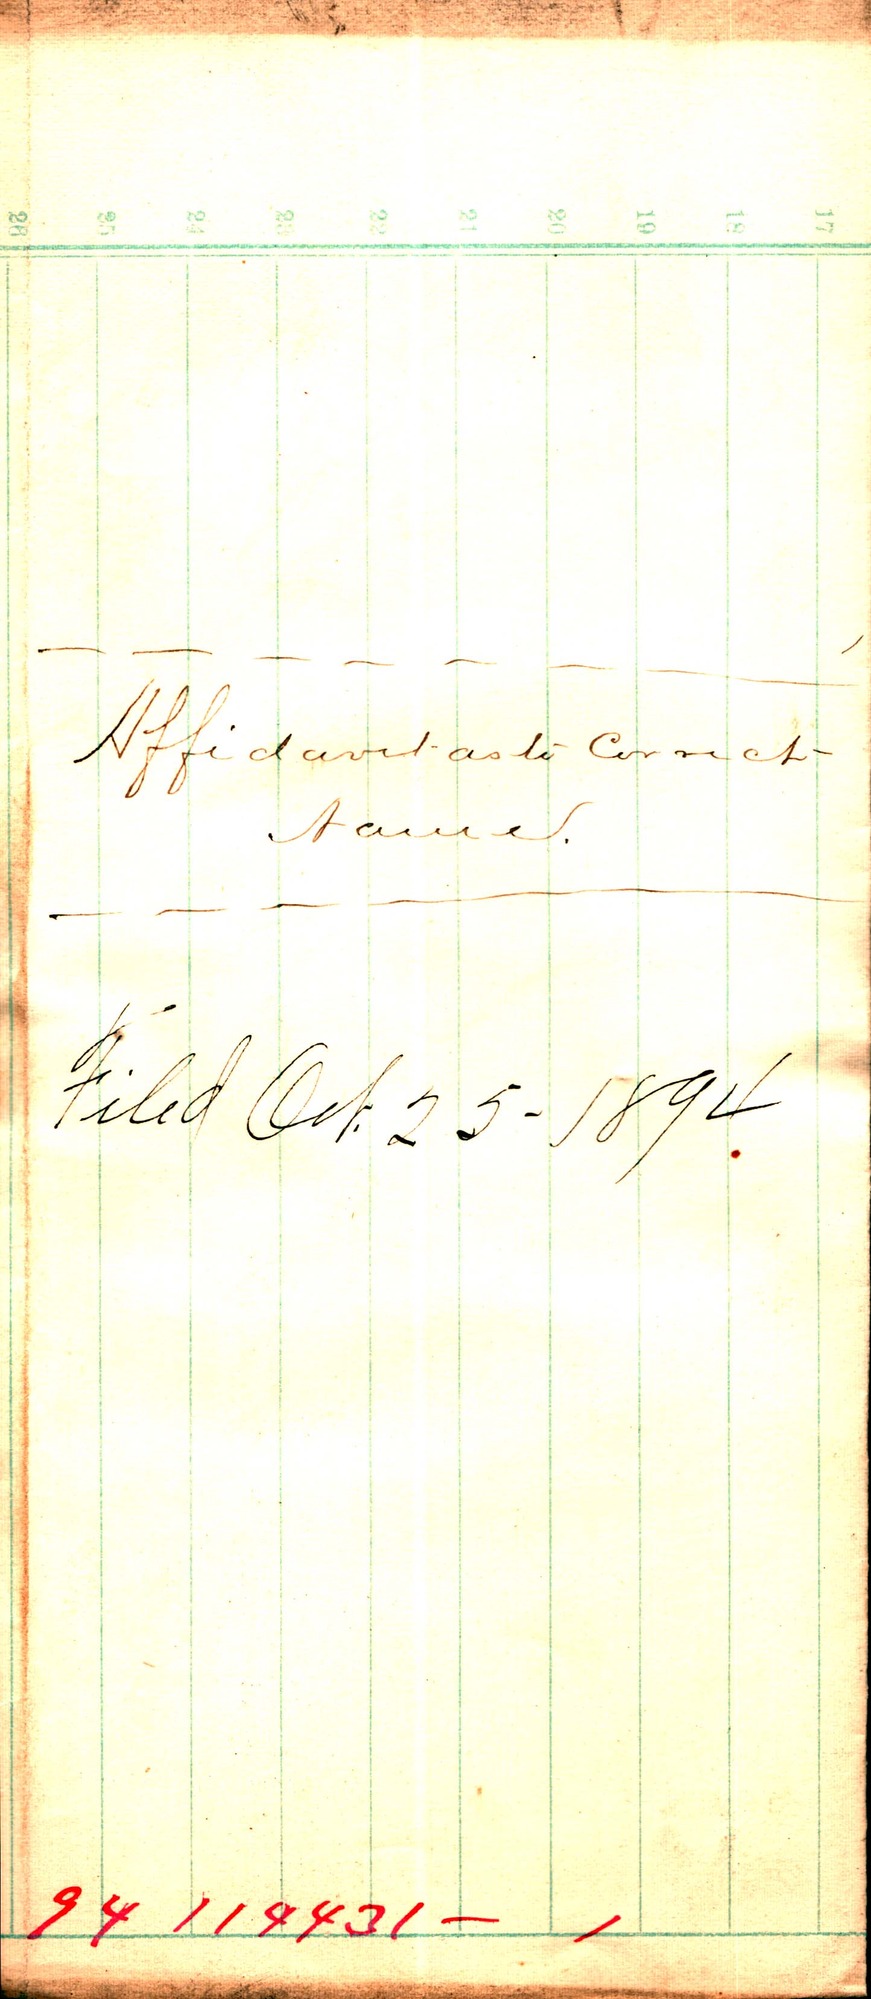 26 25 24 23 22 21 20 19 18 17
Affidavit as to Correct
Name.
Filed Oct. 25-1894.
94 114431 — 1